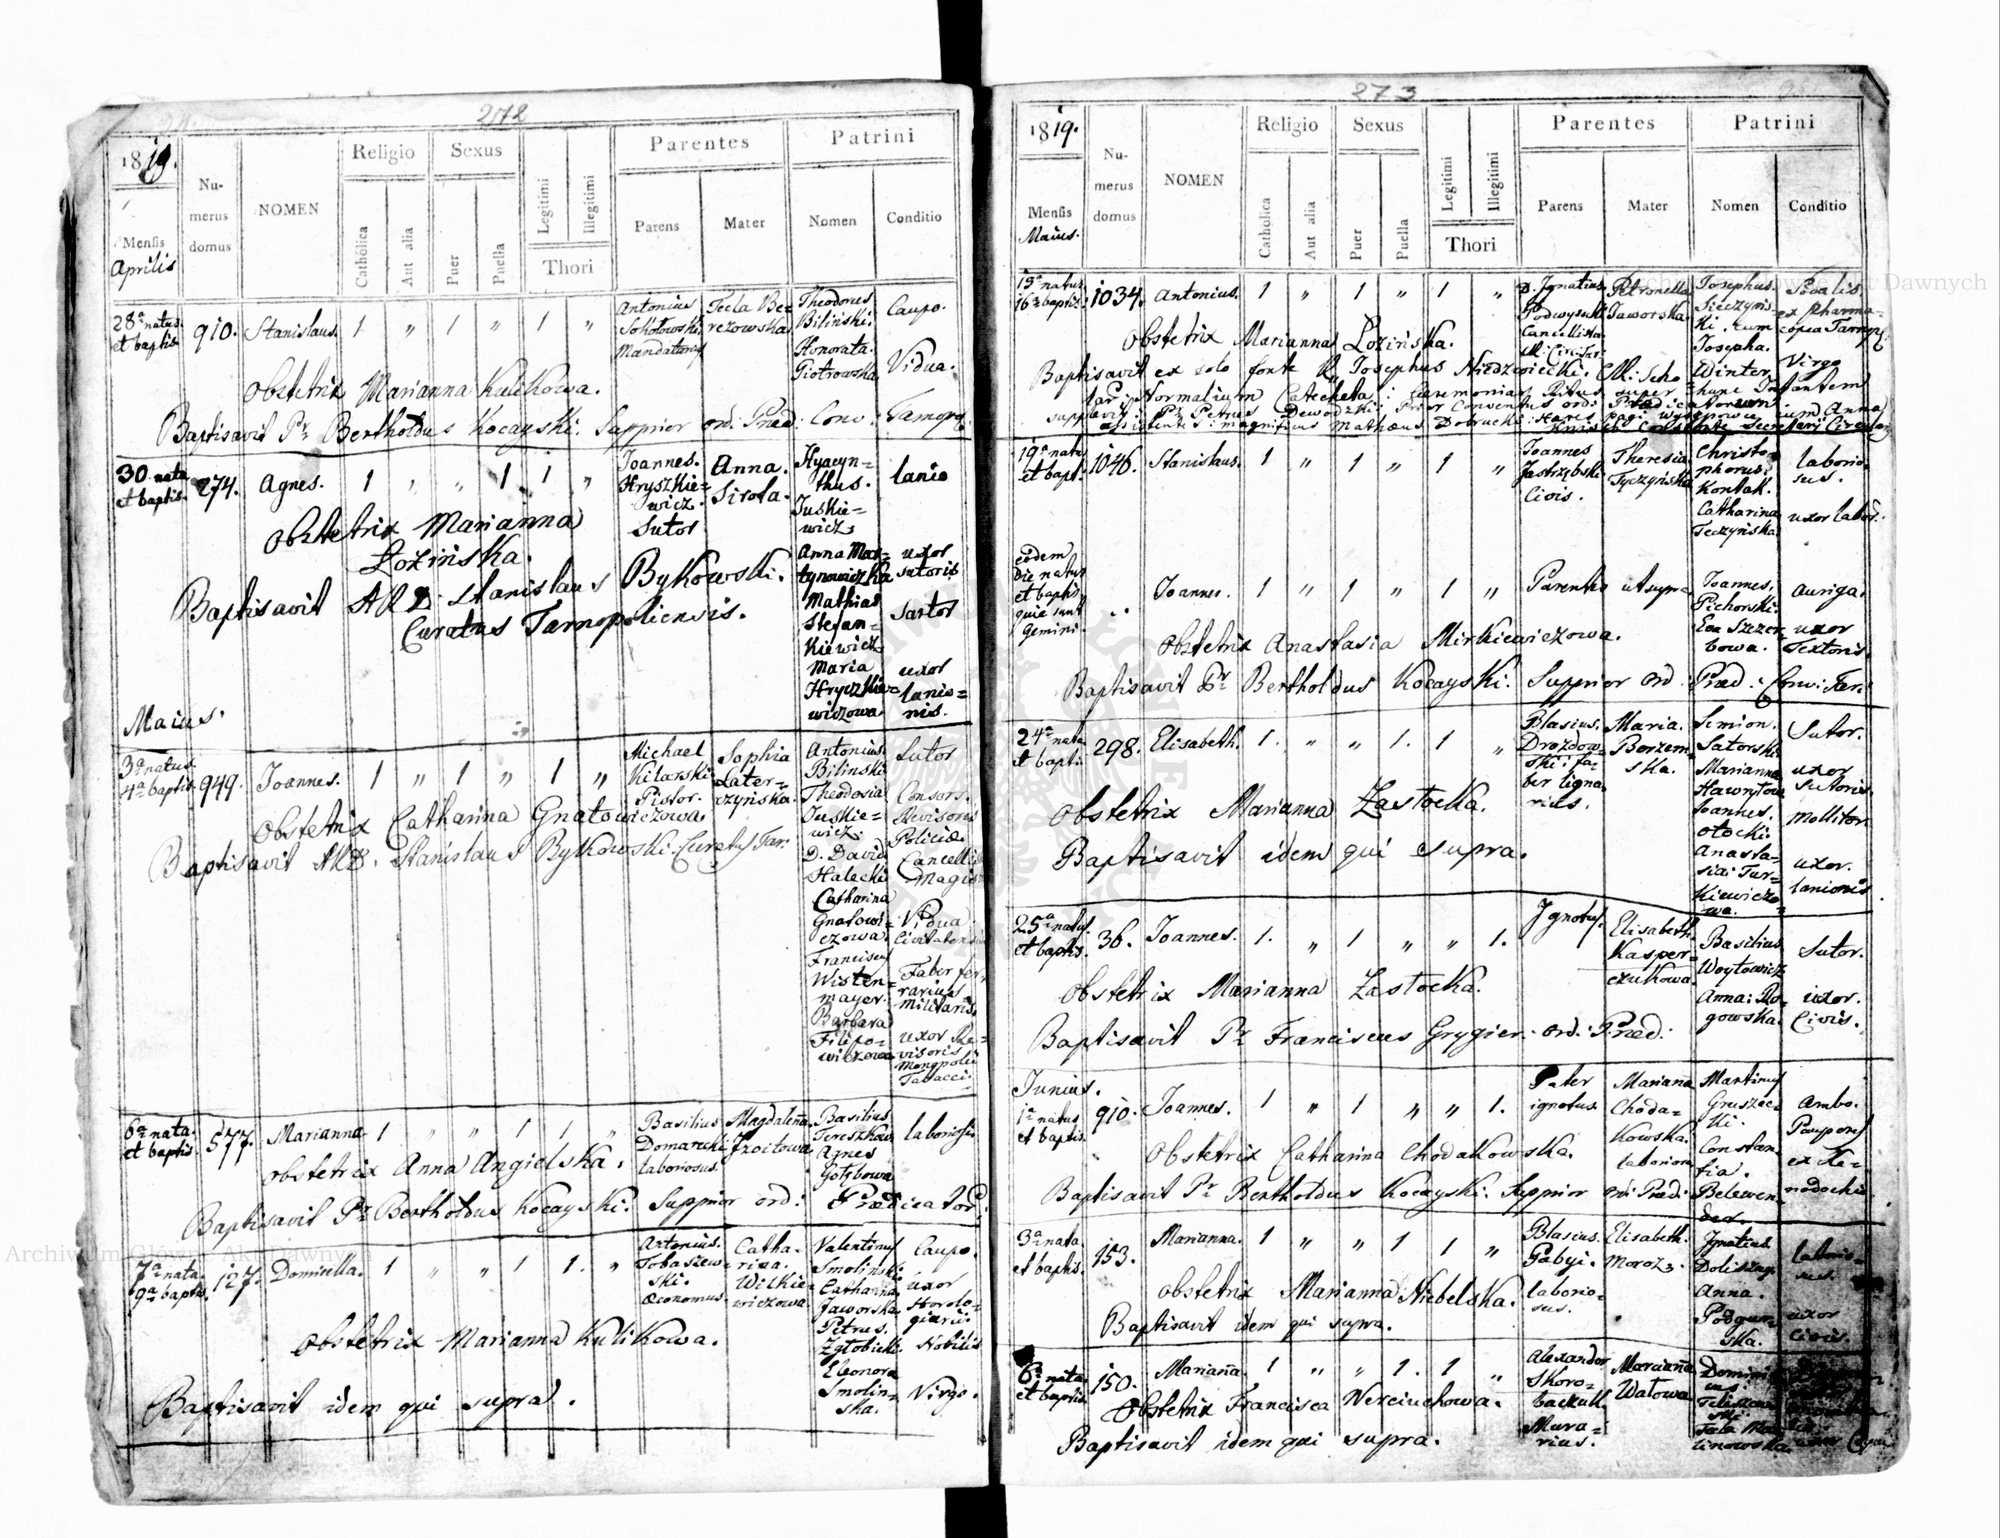 272
1819.
Numerus domus
NOMEN
Religio
Sexus
Parentes
Patrini
Mensis
Aprilis
Catholica
Aut alia
Puer
Puella
Legitimi
Illegitimi
Thori
Parens
Mater
Nomen
Conditio
28a natus et baptis. 910. Stanislaus. 1 " 1 " 1 "
Antonius Sokołowski Mandatarius
Tecla Berezowska
Theodorus Biliński. Caupo.
Honorata Piotrowska Vidua.
Obstetrix Marianna Kulikowa.
Baptisavit Pr Bertholdus Kocayski. Supprior ord: Præd: Conv: Tarnop.
30 nata et baptis. 274. Agnes. 1 " " 1 1 "
Joannes. Hryszkiewicz Sutor
Anna. Sirota.
Hyacynthus. Juskiewicz lanio
Anna uxor sutoris
Mathias Stefankiewicz sartor
Maria Hryczkiewiczowa uxor lanionis.
Obstetrix Marianna Łozińska.
Baptisavit A R D. Stanislaus Bykowski.
Curatus Tarnopoliensis.
Maius.
3a natus 4a baptis. 949. Joannes. 1 " 1 " 1 "
Michael Kitarski Pistor.
Sophia
Antonius Bilinski Sutor
Theodosia Juskiewicz. Consors Revisoris Policiæ
D. David Halecki Cancellis Magis
Catharina Gnatowiczowa. Vidua
Franciscus Wistenmayer. Faber ferrarius militaris.
Barbara Filipowiczowa uxor Revisoris Monopolii Tabacci.
Obstetrix Catharina Gnatowiczowa.
Baptisavit ARD. Stanislaus Bykowski. Curatus Tar:
6a nata et baptis. 577. Marianna 1 " " 1 1 "
Basilius laboriosus.
Magdalena
Basilius Tereszkow laboriosi
Agnes Gołębowa
Obstetrix Anna Angielska.
Baptisavit Pr Bertholdus Kocayski. Supprior ord: Prædicator:
7a nata 9a baptis. 127. Domicella. 1 " " 1 1. "
Antonius. Tobaszewski. Œconomus.
Catharina. Witkiewiczowa
Valentinus Smolinski Caupo.
Catharina Jaworska uxor Horologiarii
Petrus. Zgłobicki. Nobilis
Eleonora Smolinska. Virgo.
Obstetrix Marianna Kulikowa.
Baptisavit idem qui supra.
273
1819.
Numerus domus
NOMEN
Religio
Sexus
Parentes
Patrini
Mensis
Maius.
Catholica
Aut alia
Puer
Puella
Legitimi
Illegitimi
Thori
Parens
Mater
Nomen
Conditio
15a natus 16a baptis. 1034. Antonius. 1 " 1 " 1 "
D. Ignatius Cancellista
Petronella Jaworska.
Josephus cum Josepha. Winter
ex Pharmacopea Tarnop. Virgo
Obstetrix Marianna Łozińska.
Baptisavit ex solo fonte R. Josephus Niedzwiecki.
Normalium Catecheta: Ceremonias Ritus super hunc Infantem
supplevit: Pr. Petrus Dewodzki: Prior Conventus ord: Prædicatorum.
19a nati et bapt. 1046. Stanislaus. 1 " 1 " 1 "
Joannes Jastrzębski Civis.
Theresia Tyczyńska
Christophorus. Kontak. laboriosus.
Catharina Teczyńska. uxor labor:
eodem die natus et baptis. quia sunt gemini.
Joannes. 1 " 1 " 1 "
Parentes ut supra
Joannes. Pichorski. auriga.
Eva uxor Textoris.
Obstetrix Anastasia Mirkiewiczowa.
Baptisavit Pr Bertholdus Kocayski. Supprior ord: Præd: Conv: Tar:
24a nata et baptis. 298. Elisabeth. 1. " " 1. 1 "
Blasius. Drozdowski: faber lignarius.
Maria. Borzemska.
Simion. Satorski. Sutor.
Marianna uxor Sutoris.
Joannes. Otocki. Mollitor.
Anastasia: Turkiewiczowa. uxor. lanionis
Obstetrix Marianna Zastocka.
Baptisavit idem qui supra.
25a natus. et baptis. 36. Joannes. 1. " 1 " " 1.
Ignotus.
Elisabeth. Kasperczukowa.
Basilius Woytowicz Sutor.
Anna: Rogowska. uxor. Civis.
Obstetrix Marianna Zastocka.
Baptisavit Pr Franciscus Grygier. ord: Præd:
Junius.
1a natus et baptis. 910. Joannes. 1 " 1 " " 1.
Pater ignotus.
Marianna Chodakowska. laboriosa
Martinus Gruszecki. Ambo. Pauperes
Constantia. ex Xenodochio
Obstetrix Catharina Chodakowska.
Baptisavit Pr Bertholdus Kocayski. Supprior ord: Præd:
3a nata et baptis. 153. Marianna. 1 " " 1 1 "
Blasius. laboriosus.
Elisabeth. Moroz.
Ignatius laboriosus.
Anna. Podgurska. uxor Civis.
Obstetrix Marianna Niebelska.
Baptisavit idem qui supra.
6a nata et baptis. 150. Marianna. 1 " " 1. 1 "
Alexander Murarius.
Marianna Watowa
Obstetrix Francisca Nerciuchowa.
Baptisavit idem qui supra.
Archiwum Główne Akt Dawnych
Archiwum Główne Akt Dawnych